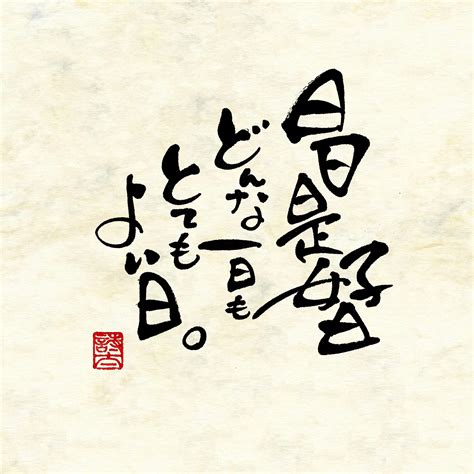 日日是好日
どんな一日も
とても
よい日。